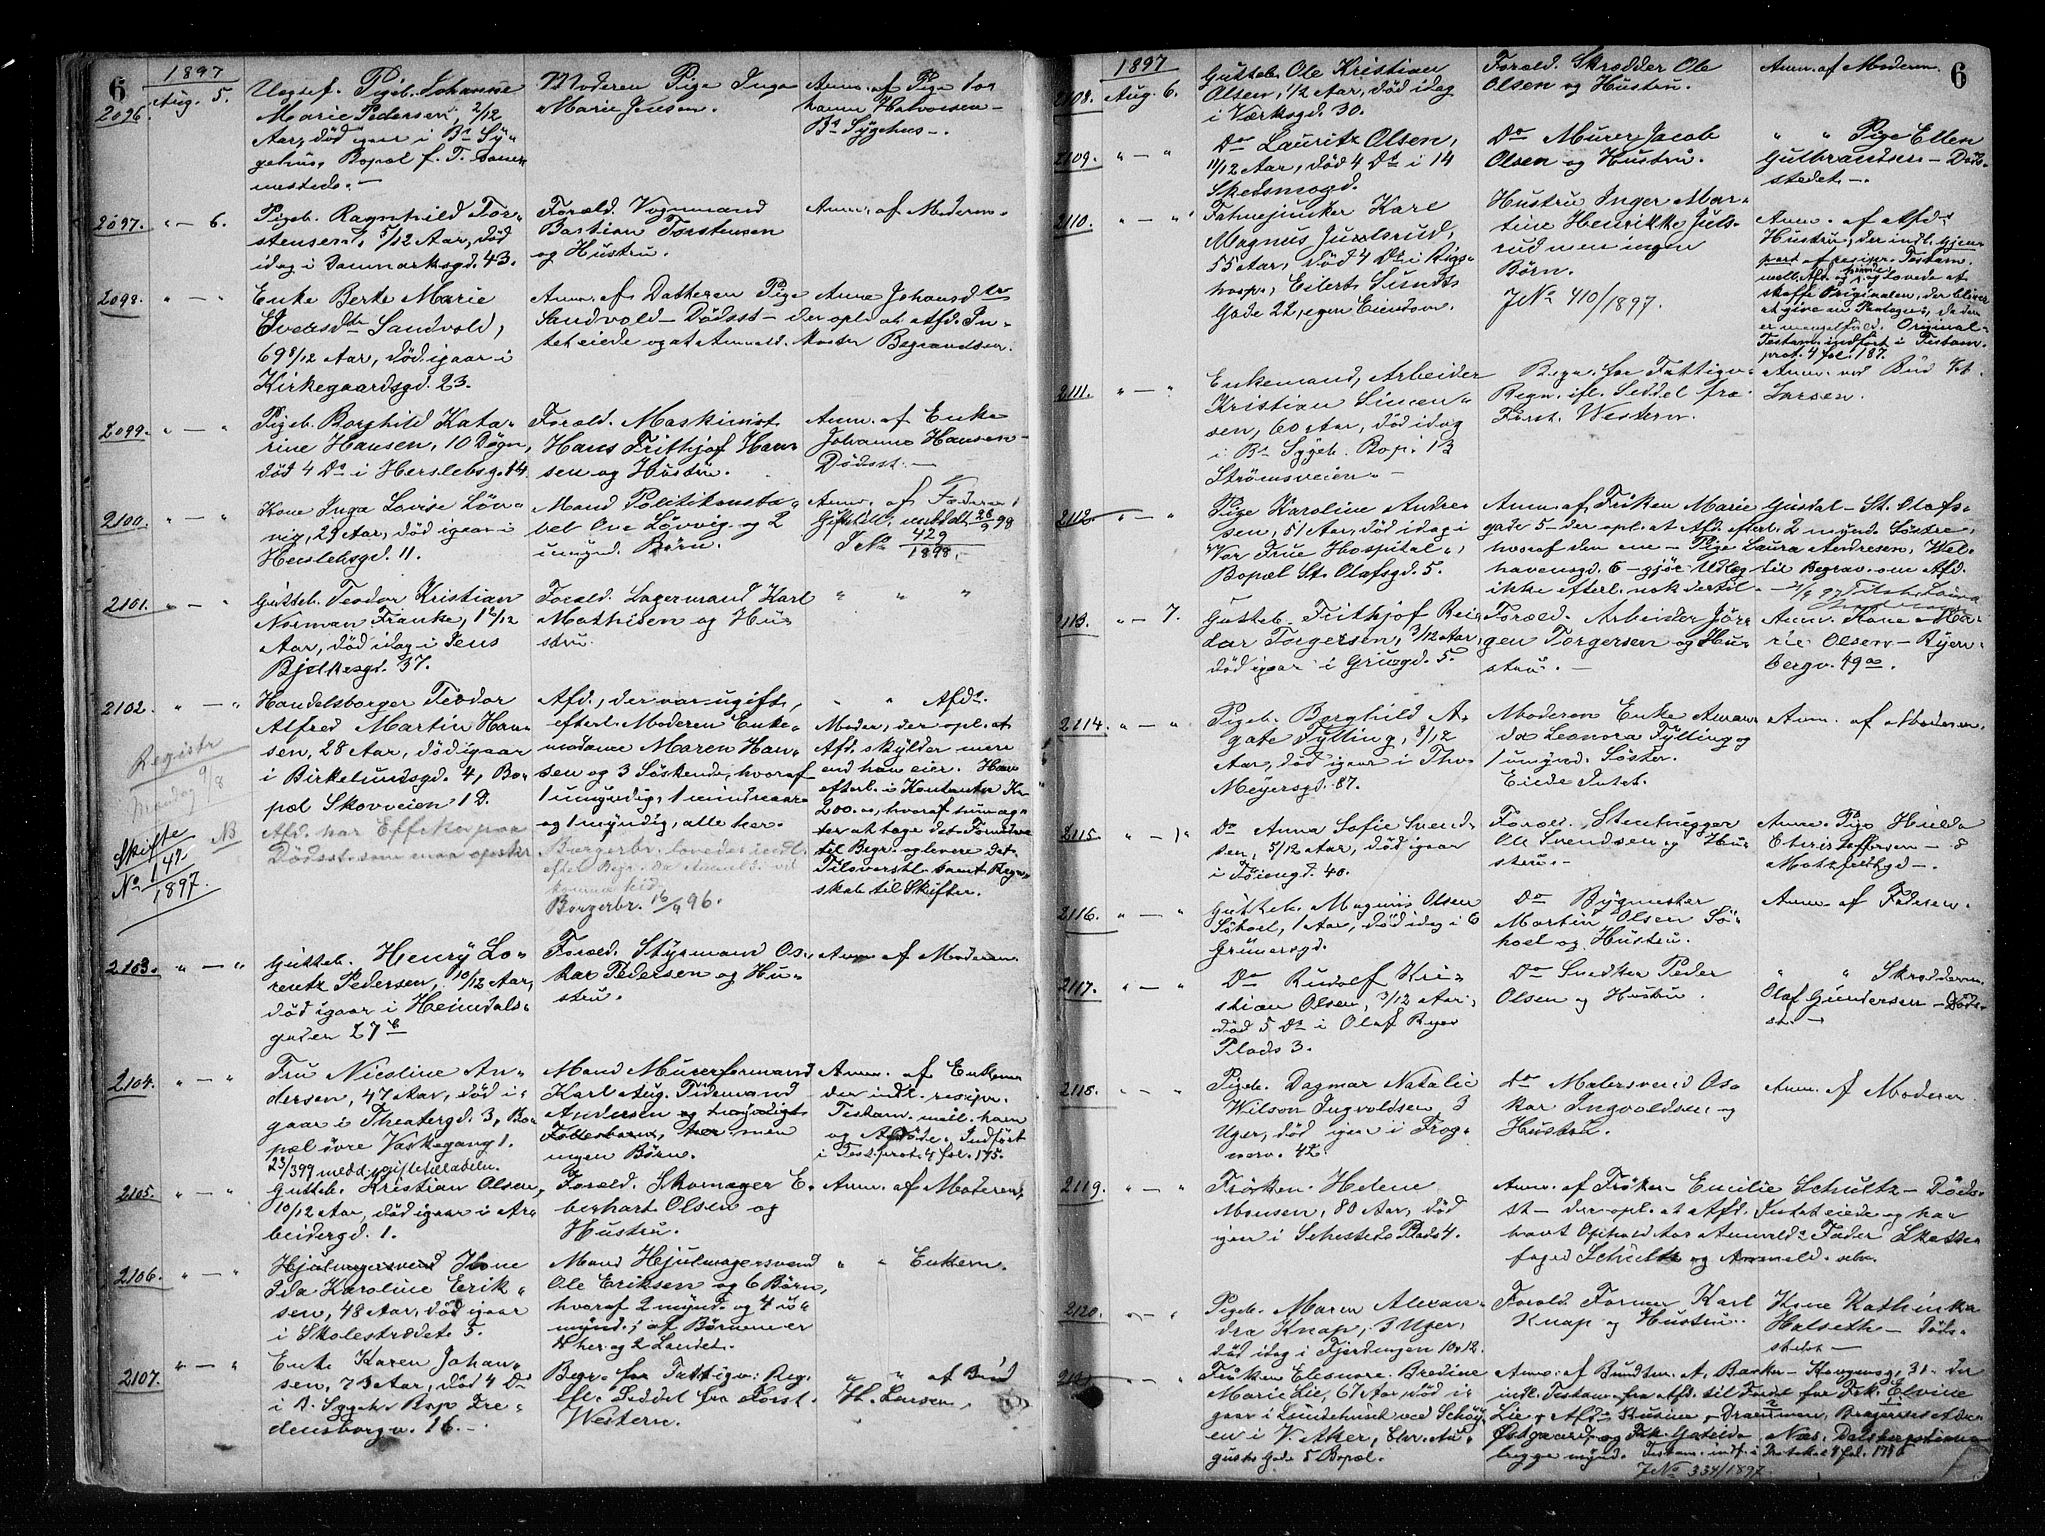 6
1897
2096. Aug. 5.
Uegtef. Pigeb. Johanne
Marie Pedersen, 2/12
Aar, død igaar i Bs Sy-
gehus, Bopæl f. T.
Moderen Pige Inga
Marie Jensen.
Anm. af Pige Jo-
hanne Halvorsen
Bs Sygehus.
2097. " — 6.
Pigeb. Ragnhild Tor-
stensen, 5/12 Aar, død
idag i Danmarksgd. 43.
Foræld. Vognmand
Bastian Torstensen
og Hustru.
Anm. af Moderen.
2098. " — "
Enke Berte Marie
Iversdtr Sandvold,
69 8/12 Aar, død igaar i
Kirkegaardsgd. 23.
Anm. af Datteren Pige Anne Johansdtr
Sandvold — Dødsst — der opl. at Afd. In-
tet eiede og at Anmeld. koster Begravelsen.
2099. " — "
Pigeb. Borghild Kata-
rine Hansen, 10 Døgn,
død 4 Ds i Herslebsgd. 14.
Foræld. Maskinist
Hans Frithjof Han-
sen og Hustru.
Anm. af Enke
Johanne Hansen
Dødsst. —
2100. " — "
Kone Inga Lovise Løv-
vig, 29 Aar, død igaar i
Herslebsgd. 11.
Mand Politikonsta-
bel Ove Løvvig og 2
umynd. Børn.
Anm. af Faderen
Giftetill. meddelt 26/9 98
J No 429/1898.
2101. " — "
Gutteb. Teodor Kristian
Norman Franke, 1 6/12
Aar, død idag i Jens
Bjelkesgd. 37.
Foræld. Lagermand Karl
Mathisen og Hu-
stru.
" " "
2102. " — "
Registr
Mandag 9/8
Skifte NB
No 147/1897.
Handelsborger Teodor
Alfred Martin Han-
sen, 28 Aar, død igaar
i Birkelundsgd. 4, Bo-
pæl Skovveien 1 D.
Afd. har Effekter paa
Dødsst. som maa
Afd., der var ugift,
efterl. Moderen Enke-
madame Maren Han-
sen og 3 Søskende, hvoraf
1 umyndig, 1 mindreaar.
og 1 myndig, alle her.
Borgerbr. lovedes indl.
efter Begr. da Anmeld. vil
komme hid.
Borgerbr. 16/9 96.
" " Afds.
Moder, der opl. at
Afd. skylder mere
end han eier. Han
efterl. i Kontanter Kr.
200.00, hvoraf hun ag-
ter at tage det Fornødne
til Begr. og levere det
Tiloversbl. samt Regn-
skab til Skifter.
2103. " — "
Gutteb. Henry Lo-
rentz Pedersen, 10/12 Aar,
død igaar i Heimdals-
gaden 27 b
Foræld. Styrmand Os-
kar Pedersen og Hu-
stru.
Anm. af Moderen
2104. " — "
Fru Nicoline An-
dersen, 47 Aar, død i-
gaar i Theatergd. 3, Bo-
pæl øvre Vaskegang 1.
23/399 medd. giftetilladeln.
Mand Murerformand
Karl Aug. Tidemand
Andersen og
men
ingen Børn.
Anm. af Enkem.
der indl. resipr.
Testam. mell. ham
og Afdøde. Indført
i Test.prot. 4 fol. 175.
2105. " — "
Gutteb. Kristian Olsen,
10/12 Aar, død igaar i Ar-
beidergd. 1.
Foræld. Skomager E-
berhart Olsen og
Hustru.
Anm. af Moderen.
2106. " — "
Hjulmagersvend Kone
Ida Karoline Erik-
sen, 48 Aar, død igaar
i Skolestrædet 5.
Mand Hjulmagersvend
Ole Eriksen og 6 Børn,
hvoraf 2 mynd. og 4 u-
mynd.; af Børnene er
4 her og 2 Landet.
" " Enkem.
2107. " — "
Enke Karen Johan-
sen, 73 Aar, død 4 Ds
i B. Sygeh. Bop. Fre-
densborgv. 16. —
Begr. for Fattigv. Reg.
ifl. Seddel fra Forst.
Western.
" " af Bud
Th. Larsen.
6
1897
2108. Aug. 6.
Gutteb. Ole Kristian
Olsen, 1/2 Aar, død idag
i Værksgd. 30.
Foræld. Skrædder Ole
Olsen og Hustru.
Anm. af Moderen.
2109. " — "
Do Lauritz Olsen,
11/12 Aar, død 4 Ds i 14
Skedsmogd.
Do Murer Jacob
Olsen og Hustru.
" " Pige Ellen
Gulbrandsen — Døds-
stedet —.
2110. " — "
Fahnejunker Karl
Magnus Juulsrud,
55 Aar, død 4 Ds i Rigs-
hosp., Eilert Sundts
Gade 22, egen Eiendom.
Hustru Inger Mar-
tine Henrikke Juls-
rud men ingen
Børn.
J No 410/1897.
Anm. af Afds
Hustru, der indl. Gjen-
part af resipr. Testam.
mell. Afd. og hende og lovede at
skaffe Originalen, der bliver
at give en Paategn., da den
er mangelfuld. Original-
Testam. indført i Testam.
prot. 4 fol. 187.
2111. " — "
Enkemand, Arbeider
Kristian Simen-
sen, 60 Aar, død idag
i Bs Sygeh. Bop. 13
Strømsveien. —
Begr. for Fattigv.
Regn. ifl. Seddel fra
Forst. Western.
Anm. ved Bud Th.
Larsen.
2112. " — "
Pige Karoline Andre-
sen, 51 Aar, død idag i
Vor Frue Hospital,
Bopæl St. Olafsgd. 5.
Anm. af Frøken Marie Gustal — St. Olafs-
gade 5 — der opl. at Afd. efterl. 2 mynd. Søstre,
hvoraf den ene — Pige Laura Andresen, Wel-
havensgd. 6 — gjør Udlæg til Begrav. om Afd.
ikke efterl. nok dertil. —
2113. " — 7.
Gutteb. Frithjof Rei-
dar Torgersen, 3/12 Aar,
død igaar i Grusgd. 5.
Foræld. Arbeider Jør-
gen Torgersen og Hu-
stru. —
Anm. Kone Ma-
rie Olsen — Ryen-
bergv. 49 a.
2114. " — "
Pigeb. Borghild A-
gate Fylling, 8/12
Aar, død igaar i Thv.
Meyersgd. 87.
Moderen Enke Aman-
da Leonora Fylling og
1 umynd. Søster.
Eiede Intet.
Anm. af Moderen
2115. " — "
Do Anna Sofie Svend-
sen, 5/12 Aar, død igaar
i Tøiengd. 40.
Foræld. Stenhugger
Ole Svendsen og Hu-
stru. —
Anm. Pige Hulda
Christoffersen — 8
Motzfeldtgd —
2116. " — "
Gutteb. Magnus Olsen
Søhoel, 1 Aar, død idag i 6
Grünersgd.
Do Bygmester
Martin Olsen Sø-
hoel og Hustru.
Anm. af Faderen.
2117. " — "
Do Rudolf Kri-
stian Olsen, 3/12 Aar,
død 5 Ds i Olaf Ryes
Plads 3.
Do Snedker Peder
Olsen og Hustru.
" " Skrædderm.
Olaf Gundersen — Døds-
st. —
2118. " — "
Pigeb. Dagmar Natalie
Wilson Ingvoldsen, 3
Uger, død igaar i Frog-
nerv. 42.
Do Malersvend Os-
kar Ingvoldsen og
Hustru.
Anm. af Moderen
2119. " — "
Frøken Helene
Monsen, 80 Aar, død
igaar i Sehesteds Plads 4.
Anm. af Frøken Emilie Schultz — Døds-
st — der opl. at Afd. Intet eiede og har
havt Ophold hos Anmelds Fader Skatte-
foged Schultz og Anmeld. selv.
2120. " — "
Pigeb. Maren Alexan-
dra Knap, 3 Uger,
død idag i Fjerdingen 10.12.
Foræld. Former Karl
Knap og Hustru.
Kone Kathinka
Halseth — Døds-
stedet —
2121 " — "
Frøken Elenore Bredine
Marie Lie, 67 Aar, død i-
gaar i Lundehuset ved Schøy-
en i V. Aker, Chr. Au-
gusts Gade 5 Bopæl.
Anm. af Bundtm. A. Backer — Kongensg. 31 — der
indl. Testam. fra Afd. til Fordel for Frk. Elvine
Lie, Afds Kusine, Drammen, Bragernes
Østgaard og Frk. Matilde Næs,
begge mynd. Testam. indf. i Protokol 4 fol. 176
J No 334/1897.